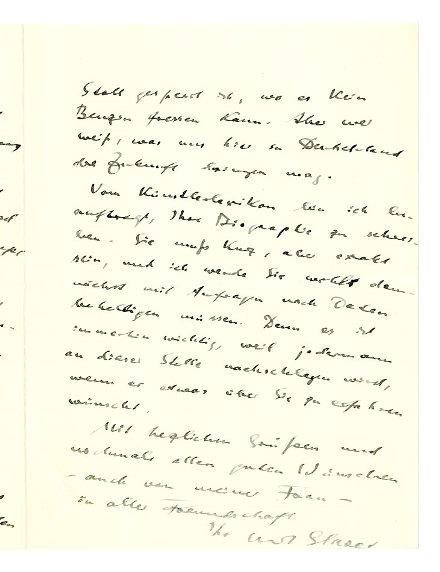 Stall gesperrt ist, wo es kein
Benzin fressen kann. Aber wer
weiß, was uns hier in Deutschland
die Zukunft bringen mag.
Vom Künstlerlexikon bin ich be-
auftragt, Ihre Biographie zu schrei-
ben. Sie muß kurz, aber exakt
sein, und ich werde Sie wohl dem-
nächst mit Anfragen nach Daten
behelligen müssen. Denn es ist
immerhin wichtig, weil jedermann
an dieser Stelle nachschlagen wird,
wenn er etwas über Sie zu erfahren
wünscht.
Mit herzlichen Grüßen und
nochmals allen guten Wünschen
- auch von meiner Frau -
in aller Freundschaft
Ihr